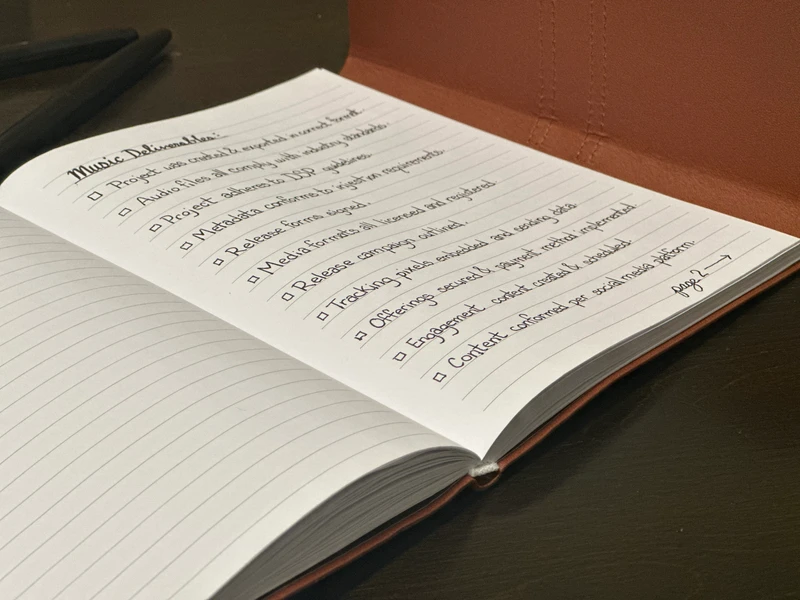 Music Deliverables:
Project was created & exported in correct format.
Audio files all comply with industry standards.
Project adheres to DSP guidelines.
Metadata conforms to injestion requirements.
Release forms signed.
Media formats all licensed and registered
Release campaign outlined.
Tracking pixels embedded and sending data.
Offerings secured & payment method implemented
Engagement content created & scheduled.
Content conformed per social media platform.
page 2 →